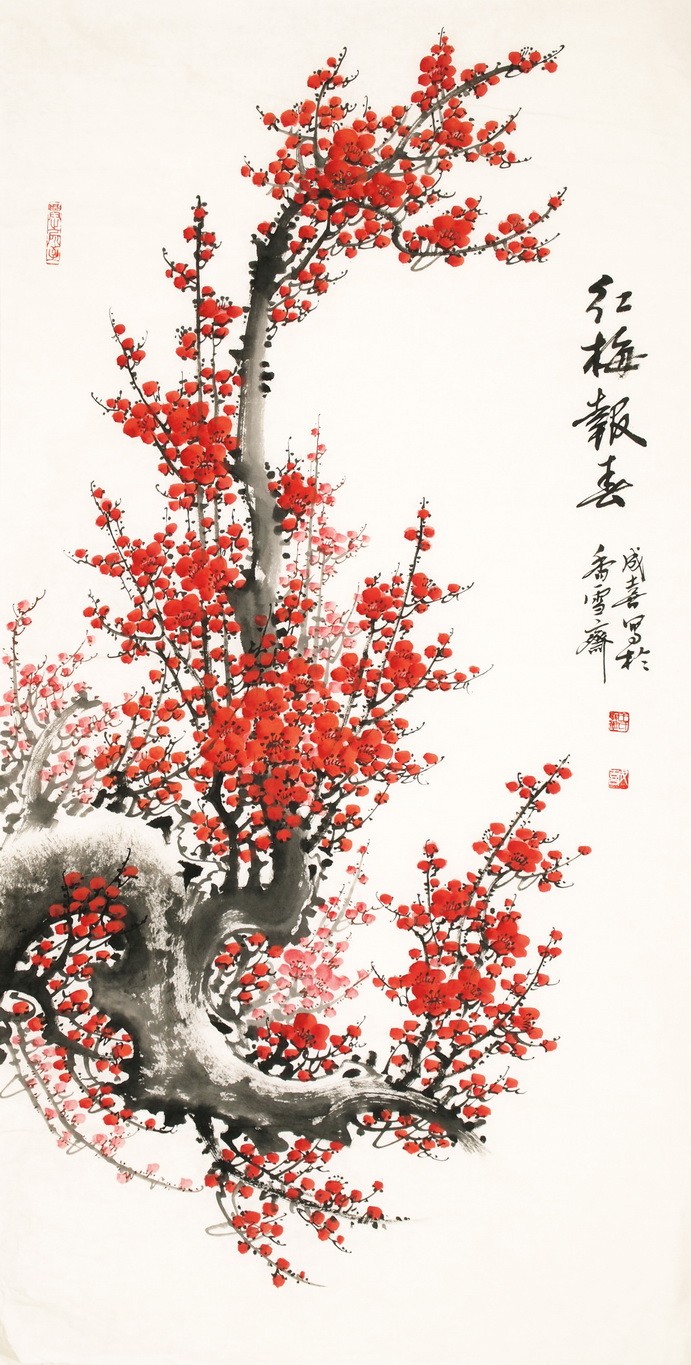 红梅報春
成喜写於
香雪齋